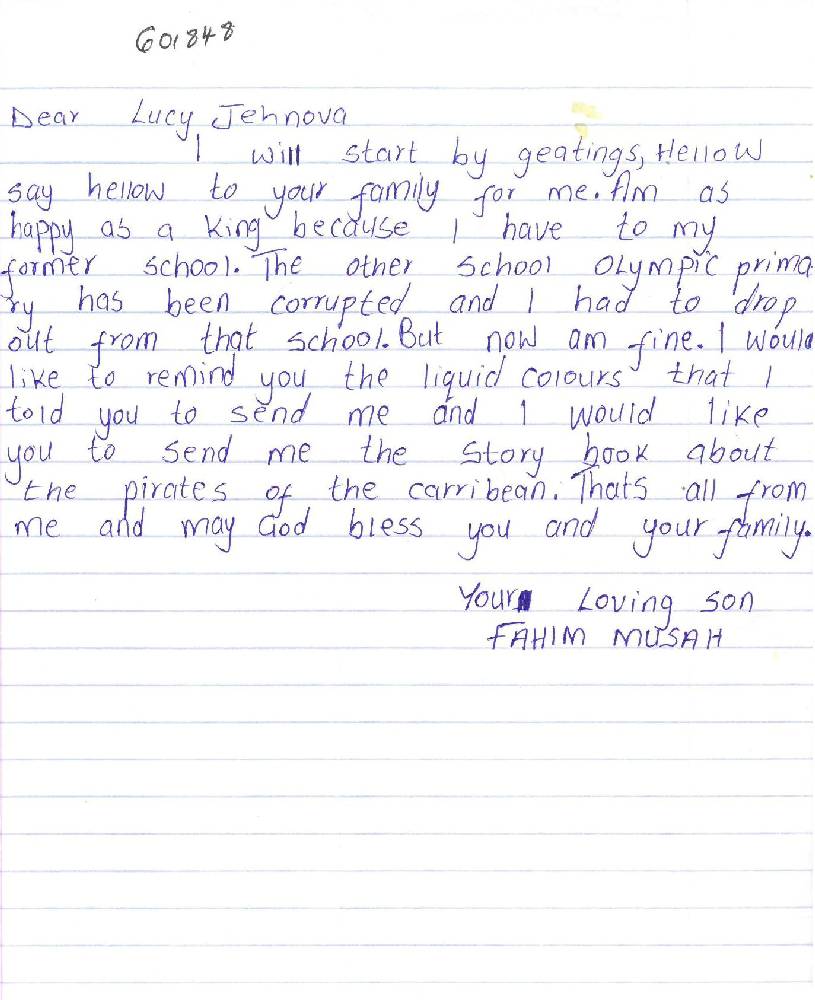 601848
Dear Lucy Jehnova
I will start by geatings, Hellow
say hellow to your family for me. Am as
happy as a king because I have to my
former school. The other school Olympic prima
ry has been corrupted and I had to drop
out from that school. But now am fine. I would
like to remind you the liquid colours that I
told you to send me and I would like
you to send me the story book about
the pirates of the carribean. Thats all from
me and may God bless you and your family.
Your Loving son
FAHIM MUSAH